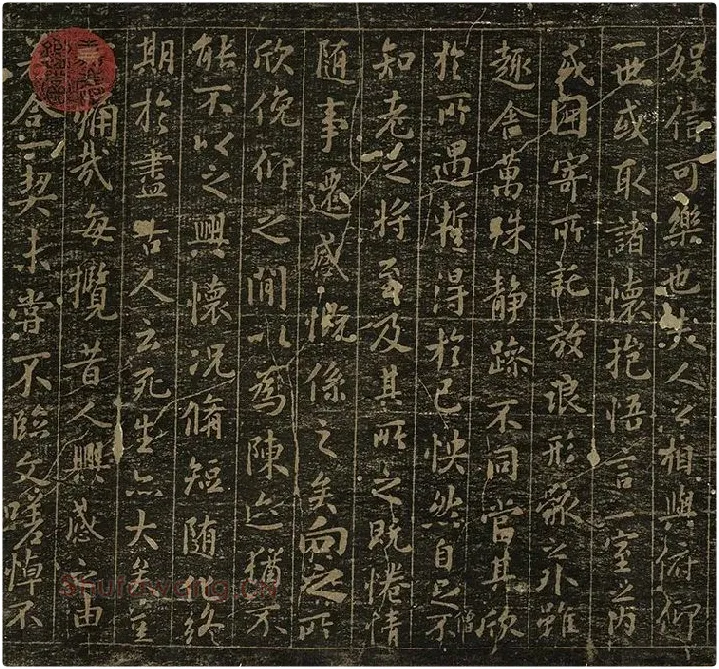 娛信可樂也夫人之相與俯仰
一世或取諸懷抱悟言一室之內
或因寄所託放浪形骸之外雖
趣舍萬殊靜躁不同當其欣
於所遇蹔得於己怏然自足不
僧
知老之將至及其所之既惓情
隨事遷感慨係之矣向之所
欣俛仰之閒以為陳迹猶不
能不以之興懷況脩短隨化終
期於盡古人云死生亦大矣豈
痛哉每攬昔人興感之由
若合一契未嘗不臨文嗟悼不
Shufawang.cn